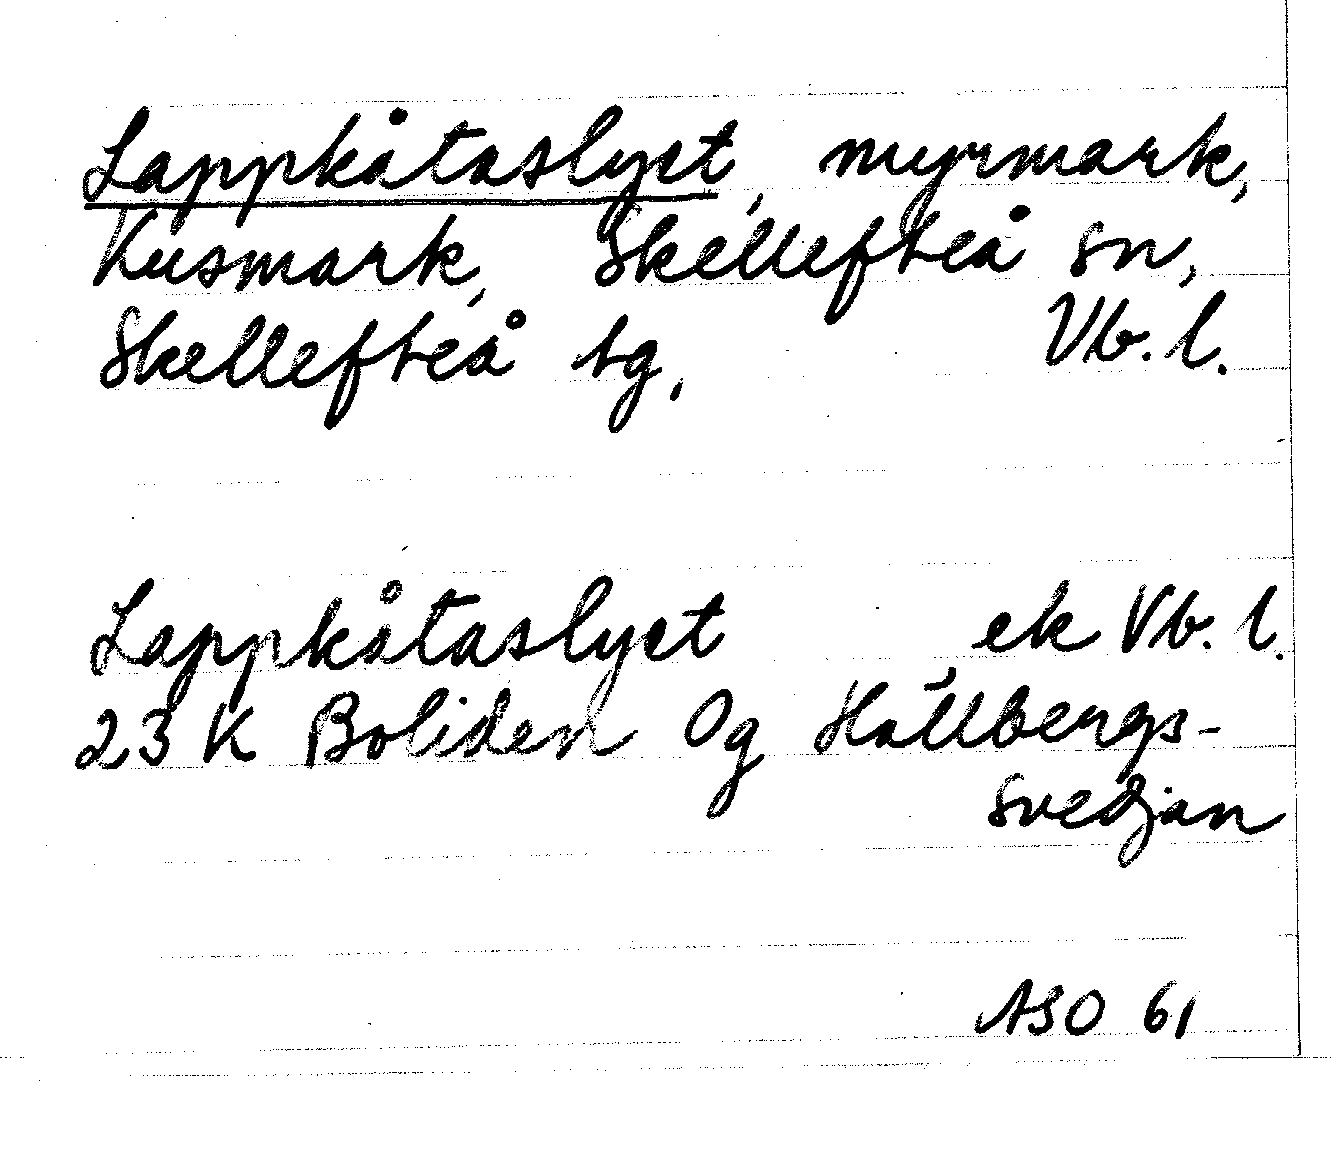 Lappkåtaslyct, myrmark,
Kusmark, Skellefteå sn,
Skellefteå tg. Vb. l.
Lappkåtaslyct ek Vb. l.
23 K Boliden Og Hällbergs-
svedjan
ASO 61